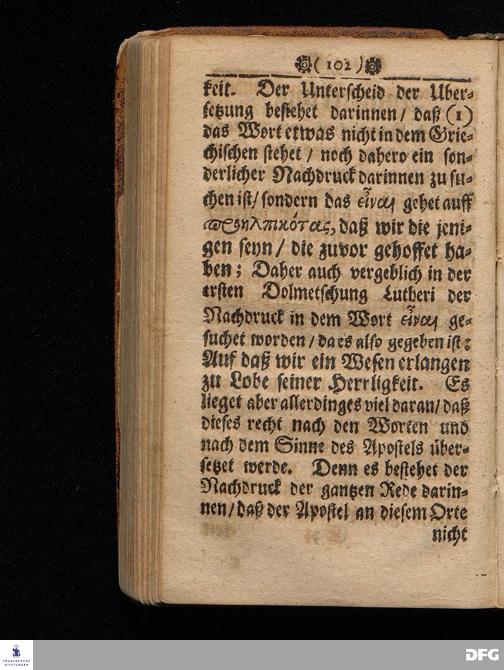 ( 102 )
keit. Der Unterscheid der Uber-
setzung bestehet darinnen / daß (1)
das Wort etwas nicht in dem Grie-
chischen stehet / noch dahero ein son-
derlicher Nachdruck darinnen zu su-
chen ist / sondern das εἶναι gehet auff
προηλπικότας, daß wir die jeni-
gen seyn / die zuvor gehoffet ha-
ben; Daher auch vergeblich in der
ersten Dolmetschung Lutheri der
Nachdruck in dem Wort εἶναι ge-
suchet worden / da es also gegeben ist:
Auf daß wir ein Wesen erlangen
zu Lobe seiner Herrligkeit. Es
lieget aber allerdinges viel daran / daß
dieses recht nach den Worten und
nach dem Sinne des Apostels über-
setzet werde. Denn es bestehet der
Nachdruck der gantzen Rede darin-
nen / daß der Apostel an diesem Orte
nicht
FRANCKESCHE
STIFTUNGEN
DFG